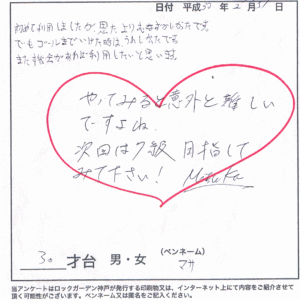 日付 平成30年2月11日
初めて利用しましたが、思たよりもむずかしかたです。
でもゴールまでいけた時は、うれしかたです。
また機会があれば利用したいと思います。
やってみると意外と難しい
ですよね。
次回は7級目指して
みて下さい!
30才台 男・女
(ペンネーム)
マサ
当アンケートはロックガーデン神戸が発行する印刷物又は、インターネット上にて内容をご紹介させて
頂く可能性がございます。ペンネーム又は匿名をご記入ください。